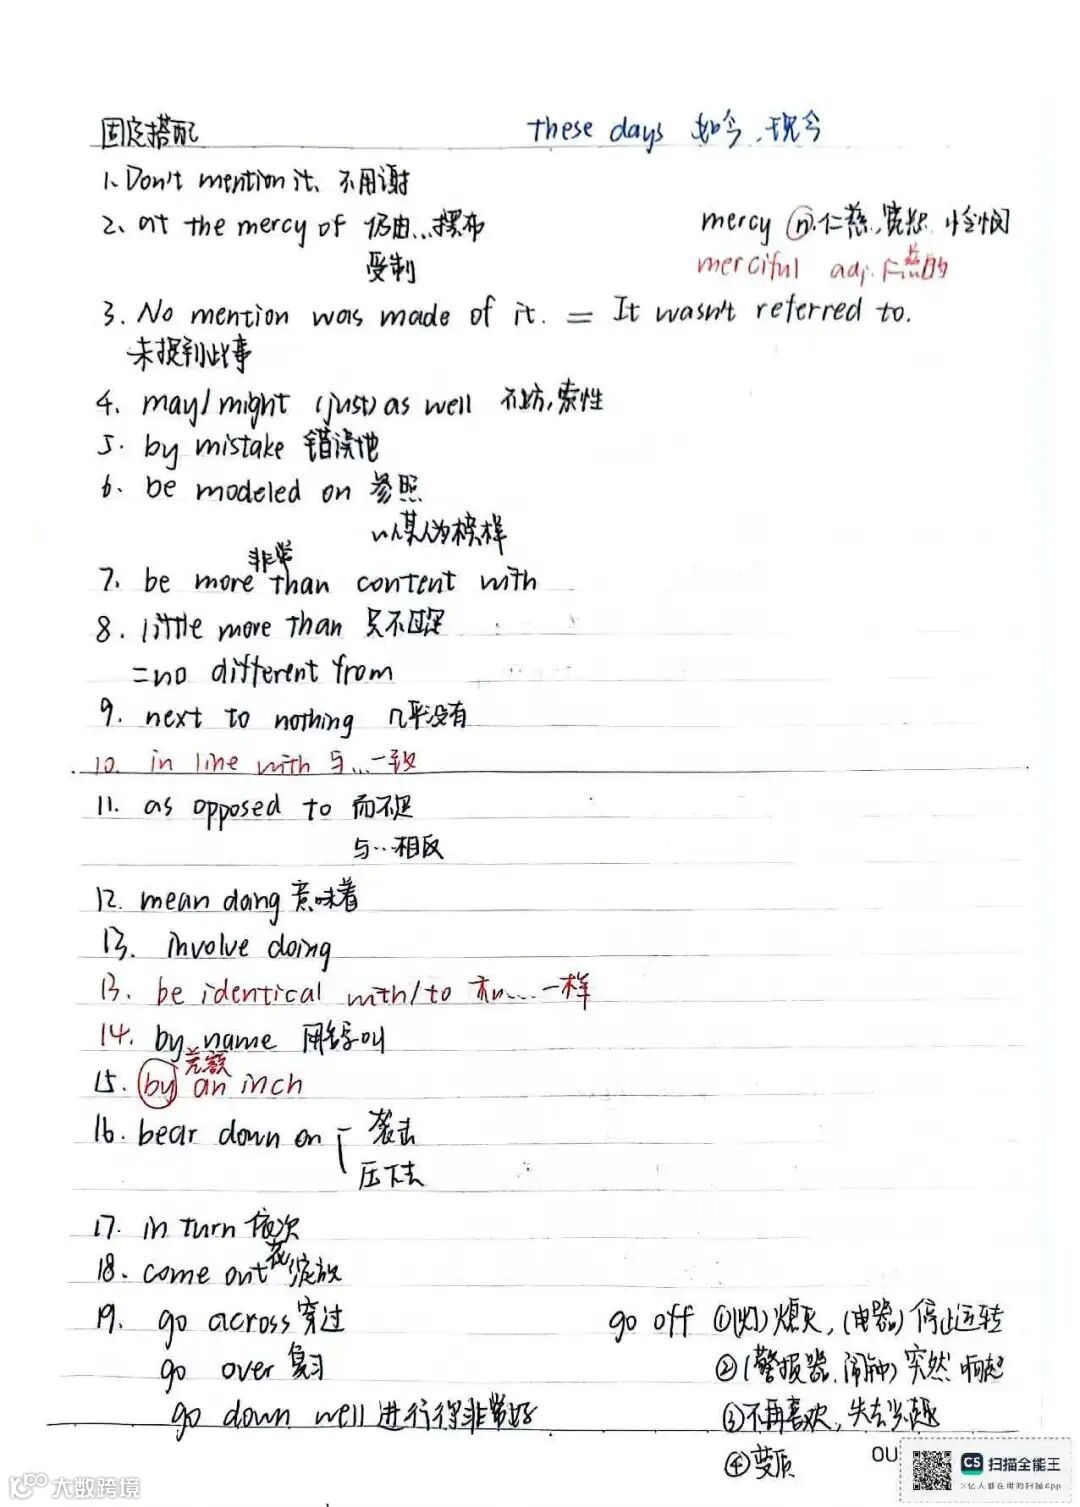 固定搭配
These days 如今、现今
1. Don't mention it. 不用谢
2. at the mercy of 任由...摆布
受制
mercy (n). 仁慈,宽恕. 怜悯
merciful adj. 仁慈的
3. No mention was made of it. = It wasn't referred to.
未提到此事
4. may/might (just) as well 不妨,索性
5. by mistake 错误地
6. be modeled on 参照
以某人为榜样
非常
7. be more than content with
8. little more than 只不过是
=no different from
9. next to nothing 几乎没有
10. in line with 与...一致
11. as opposed to 而不是
与...相反
12. mean doing 意味着
13. involve doing
13. be identical with/to 和...一样
14. by name 用名字叫
差额
15. by an inch
16. bear down on 袭击
压下去
17. in turn 依次
18. come out 花绽放
19. go across 穿过
go over 复习
go down well 进行得非常好
go off ①(灯)熄灭,(电器)停止运转
②(警报器、闹钟)突然响起
③不再喜欢,失去兴趣
④变质
OU
CS 扫描全能王
3亿人都在用的扫描App
大数跨境